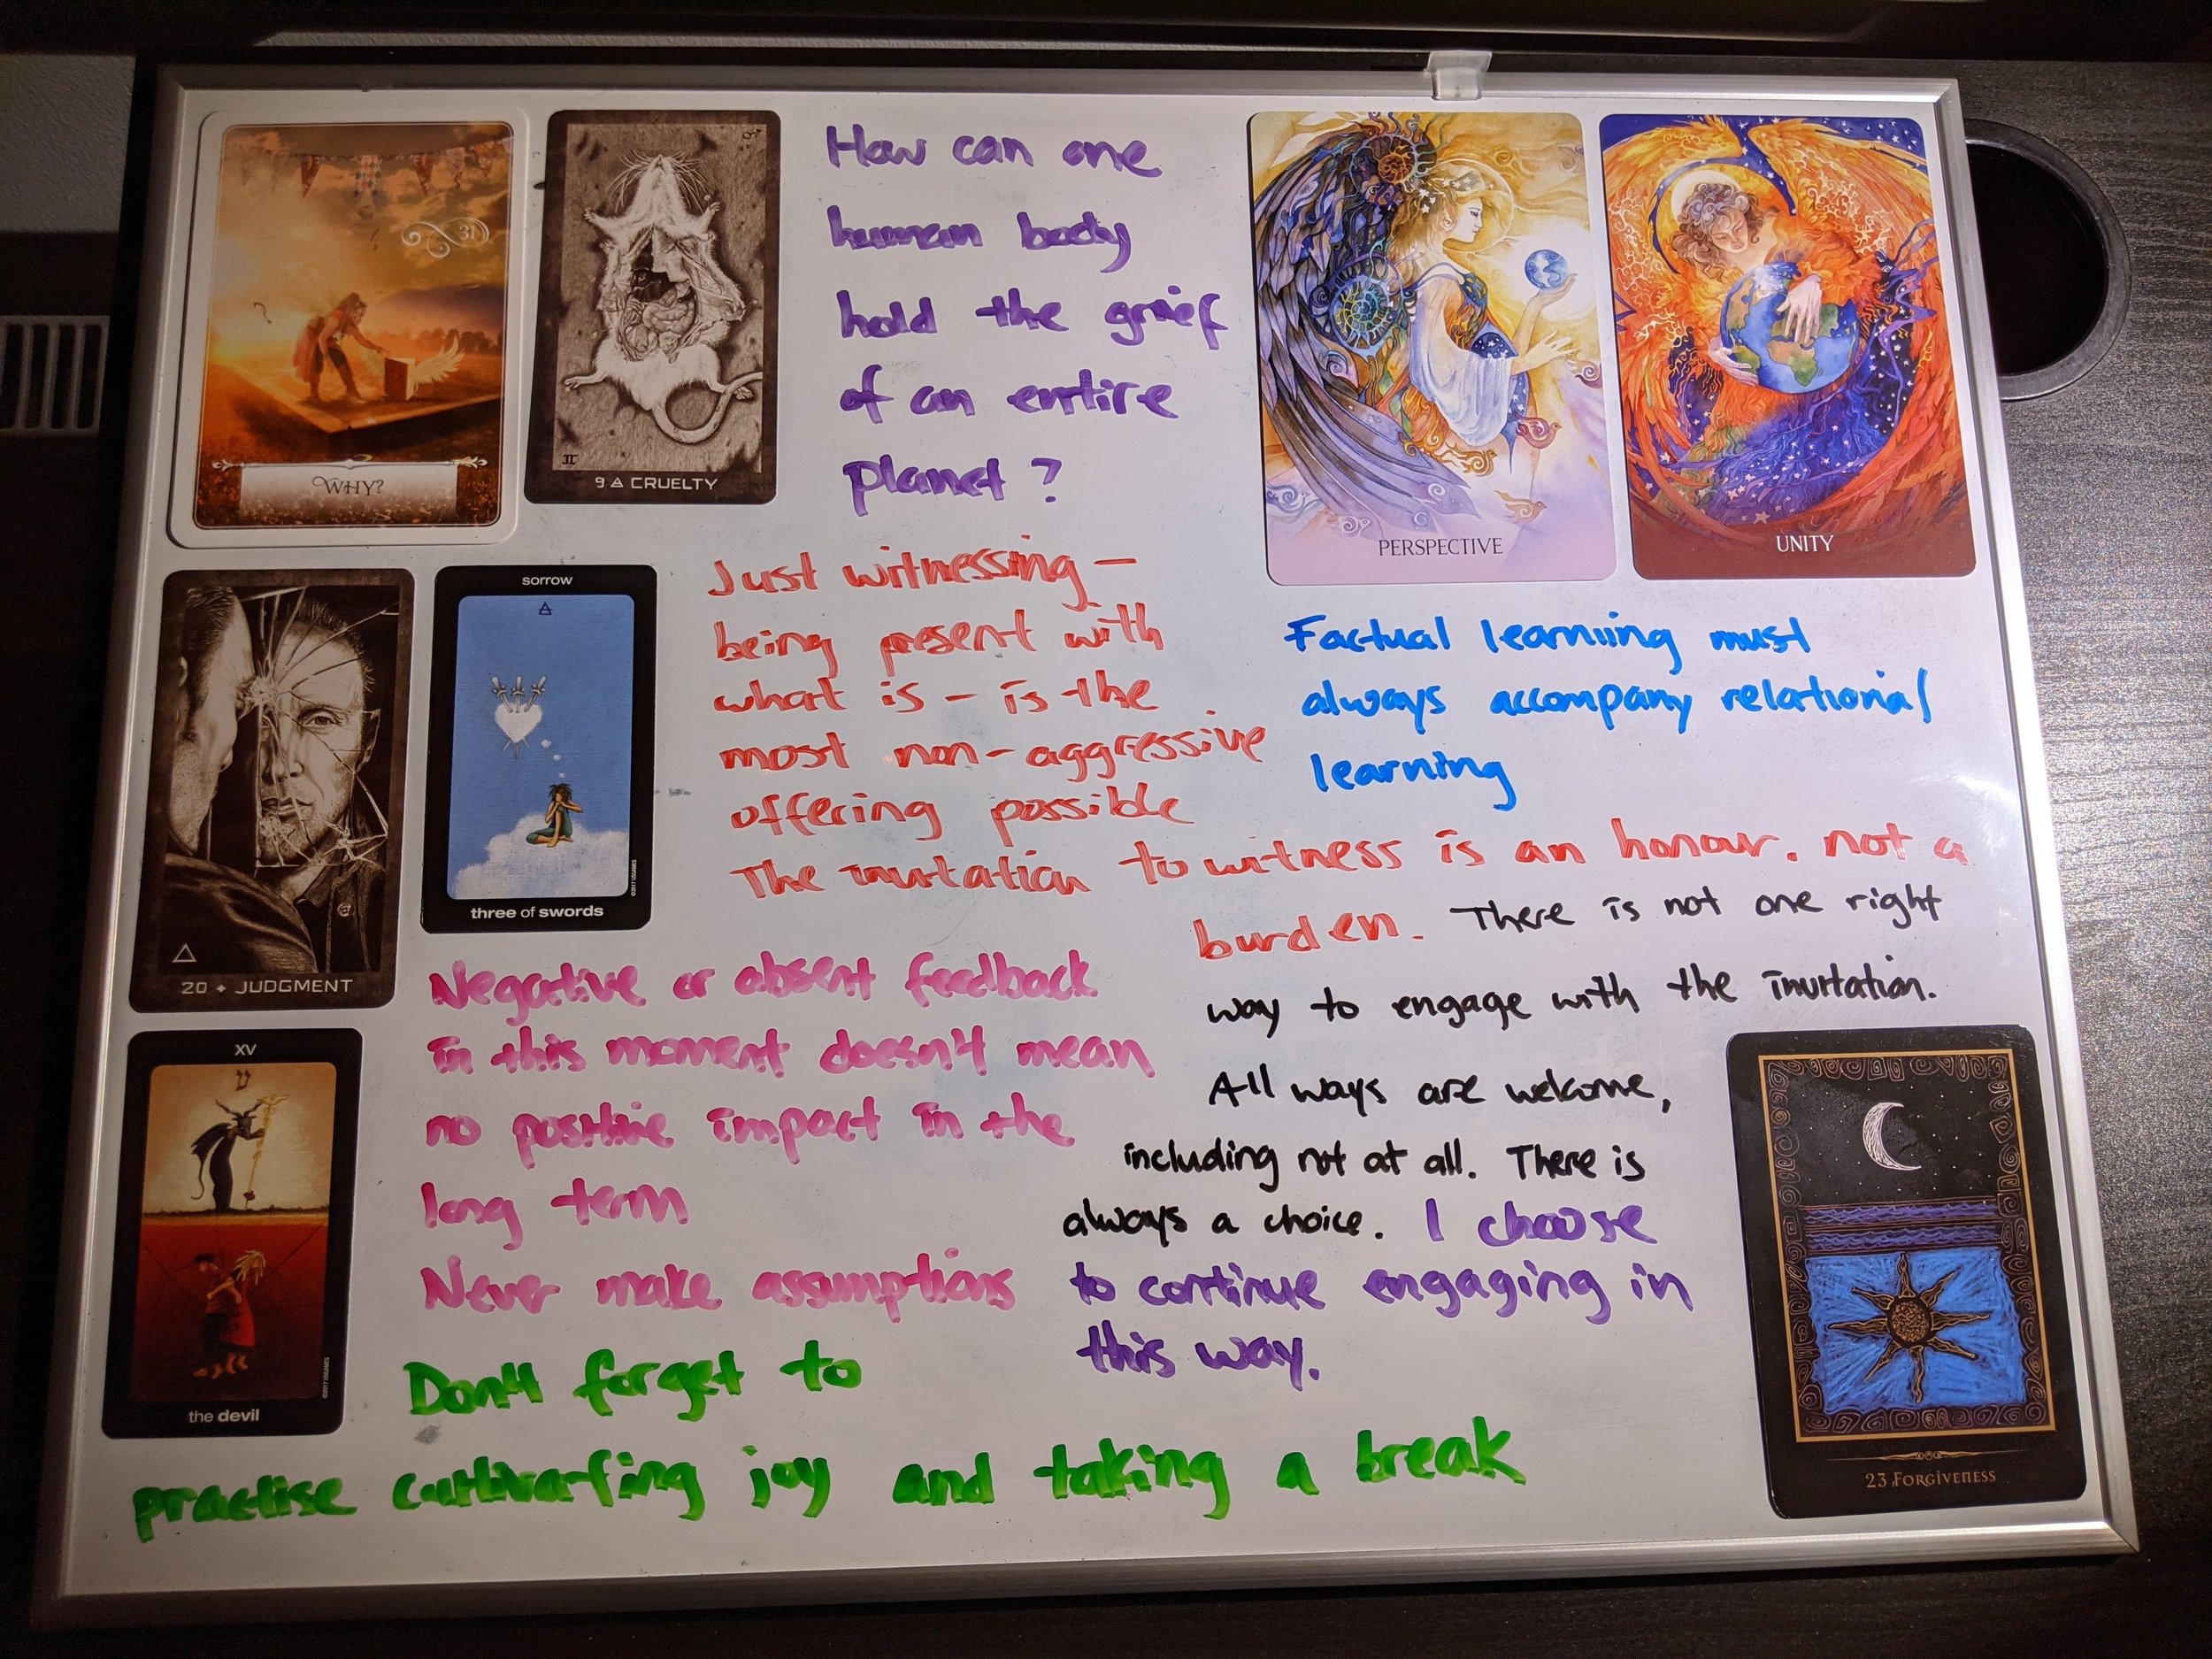 31
WHY?
II
9 🜁 CRUELTY
How can one
human body
hold the grief
of an entire
planet?
PERSPECTIVE
UNITY
20 ♦ JUDGMENT
sorrow
three of swords
©2017 USGAMES
Just witnessing –
being present with
what is – is the
most non-aggressive
offering possible
The invitation to witness is an honour. not a
burden.
Factual learniing must
always accompany relational
learning
There is not one right
way to engage with the invitation.
All ways are welcome,
including not at all. There is
always a choice. I choose
to continue engaging in
this way.
Negative or absent feedback
in this moment doesn't mean
no positive impact in the
long term
Never make assumptions
XV
the devil
©2017 USGAMES
Don't forget to
practise cultivating joy and taking a break
23 FORGIVENESS